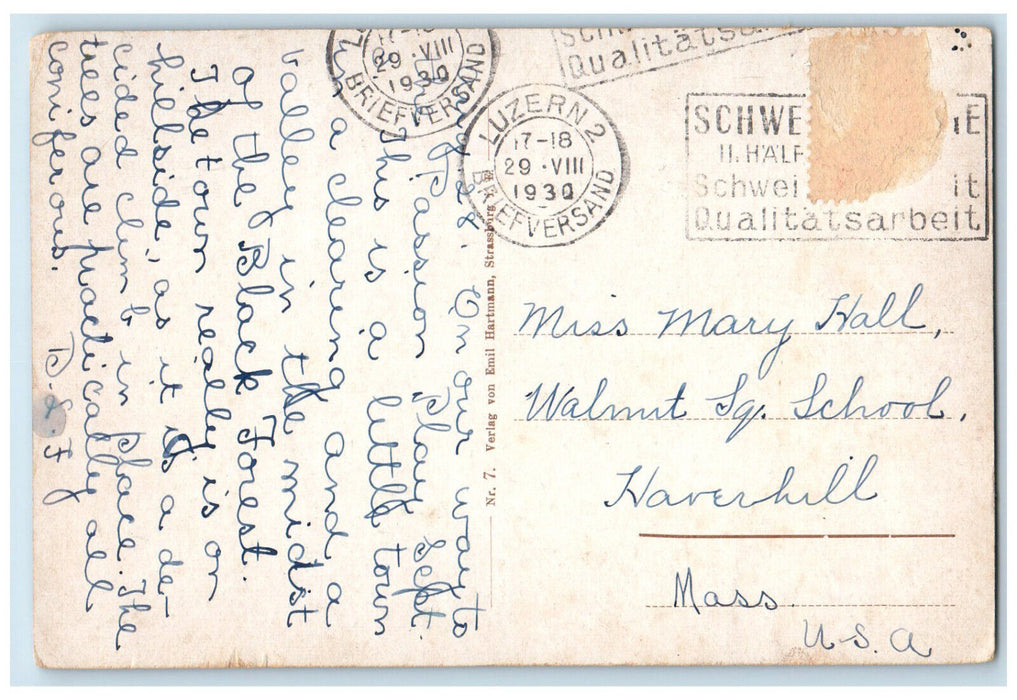 On our way to
Passion Play Sept.
This is a little town
in a clearing and a
valley in the midst
of the Black Forest.
The town really is on
hillside, as it is a de-
cided climb in place. The
trees are practically all
coniferous.
Nr. 7. Verlag von Emil Hartmann, Strassburg
17-18
29·VIII
1930
BRIEFVERSAND
Qualitätsa
LUZERN 2
17-18
29·VIII
1930
BRIEFVERSAND
SCHWE IE
II. HÄLF
Schwei it
Qualitätsarbeit
Miss Mary Hall,
Walnut Sq. School,
Haverhill
Mass.
U.S.A